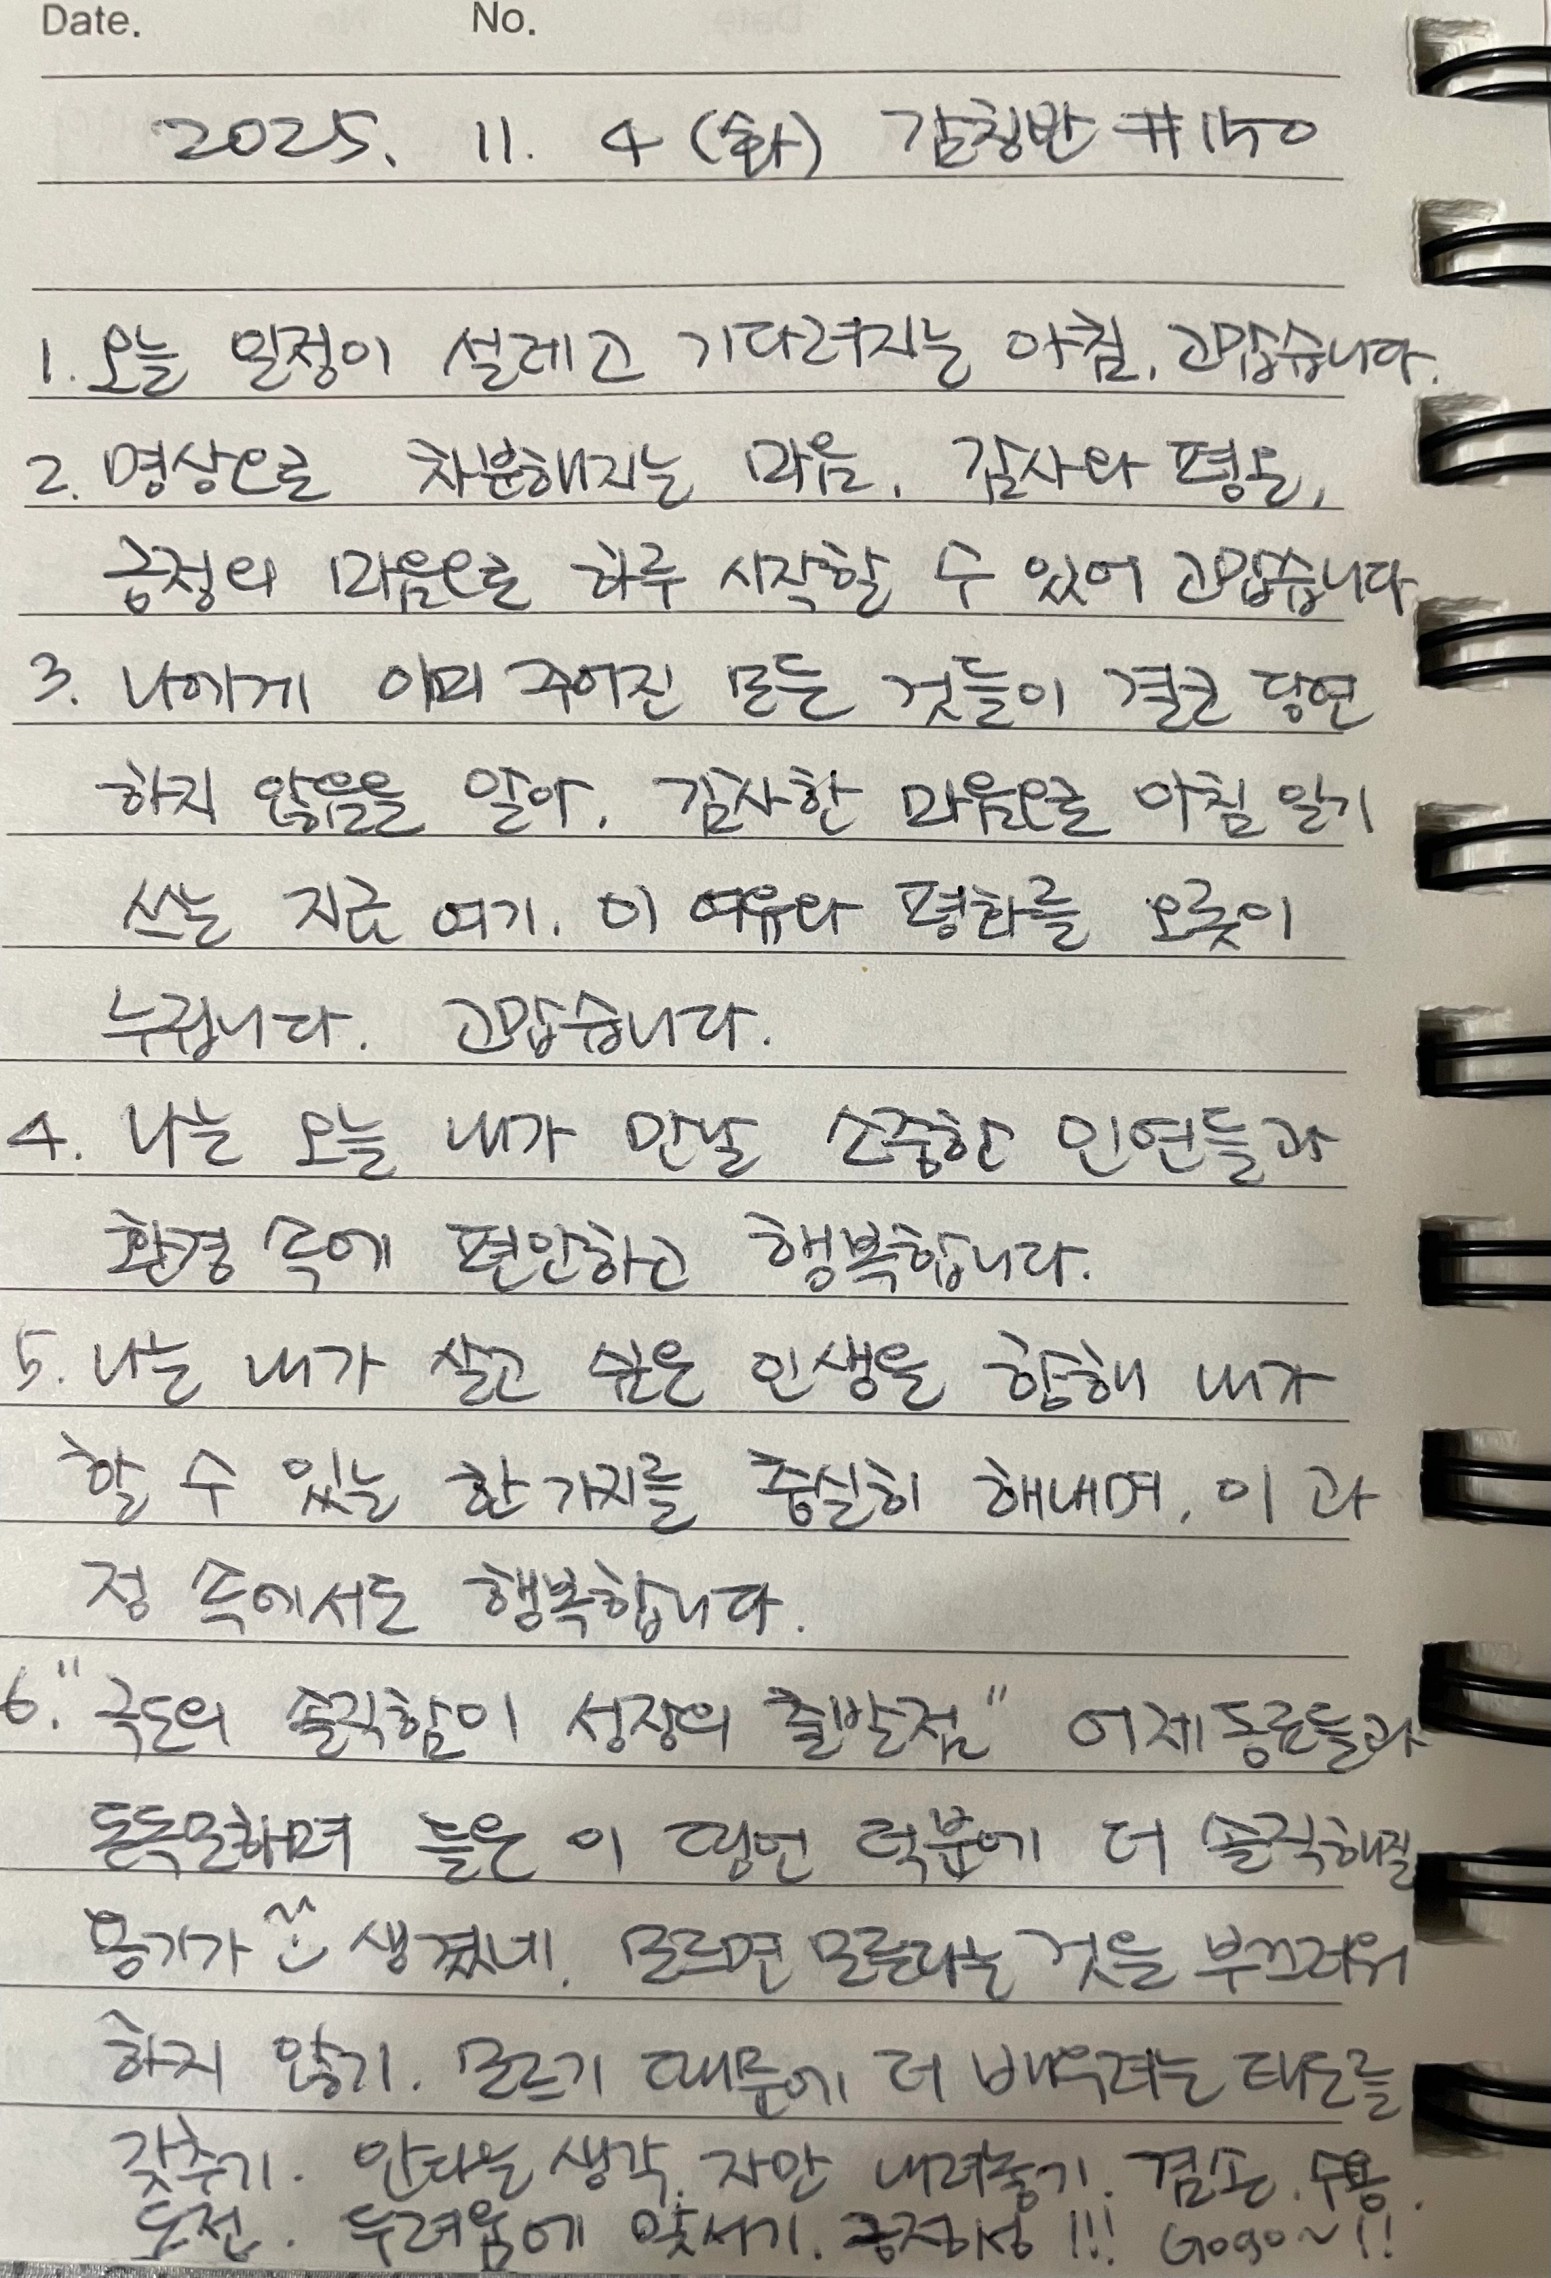 Date. No.
2025. 11. 4 (화) 감칭반 #150
1. 오늘 일정이 설레고 기다려지는 아침. 고맙습니다.
2. 명상으로 차분해지는 마음. 감사와 평온,
긍정의 마음으로 하루 시작할 수 있어 고맙습니다
3. 나에게 이미 주어진 모든 것들이 결코 당연
하지 않음을 알아. 감사한 마음으로 아침 일기
쓰는 지금 여기. 이 여유와 평화를 오롯이
누립니다. 고맙습니다.
4. 나는 오늘 내가 만날 소중한 인연들과
환경 속에 편안하고 행복합니다.
5. 나는 내가 살고 싶은 인생을 향해 내가
할 수 있는 한 가지를 충실히 해내며, 이 과
정 속에서도 행복합니다.
6. "극도의 솔직함이 성장의 출발점" 어제 동료들과
돈독모하며 들은 이 명언 덕분에 더 솔직해질
용기가 생겼네. 모르면 모른다는 것을 부끄러워
하지 않기. 모르기 때문에 더 배우려는 태도를
갖추기. 안다는 생각, 자만 내려놓기. 겸손. 수용.
도전. 두려움에 맞서기. 긍정하성!!! Gogo~!!